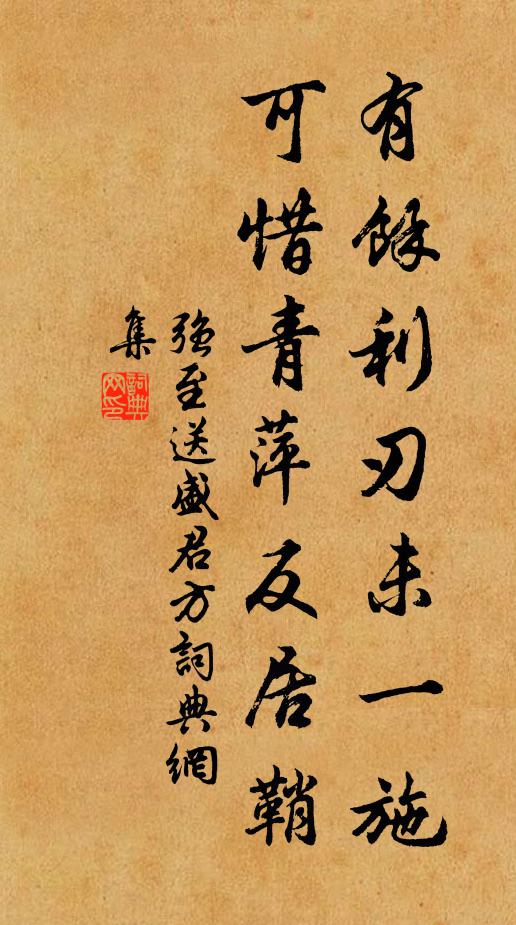 有餘利刃未一施
可惜青萍反居鞘
強至送盛君方詞典網
集
詞典
網印